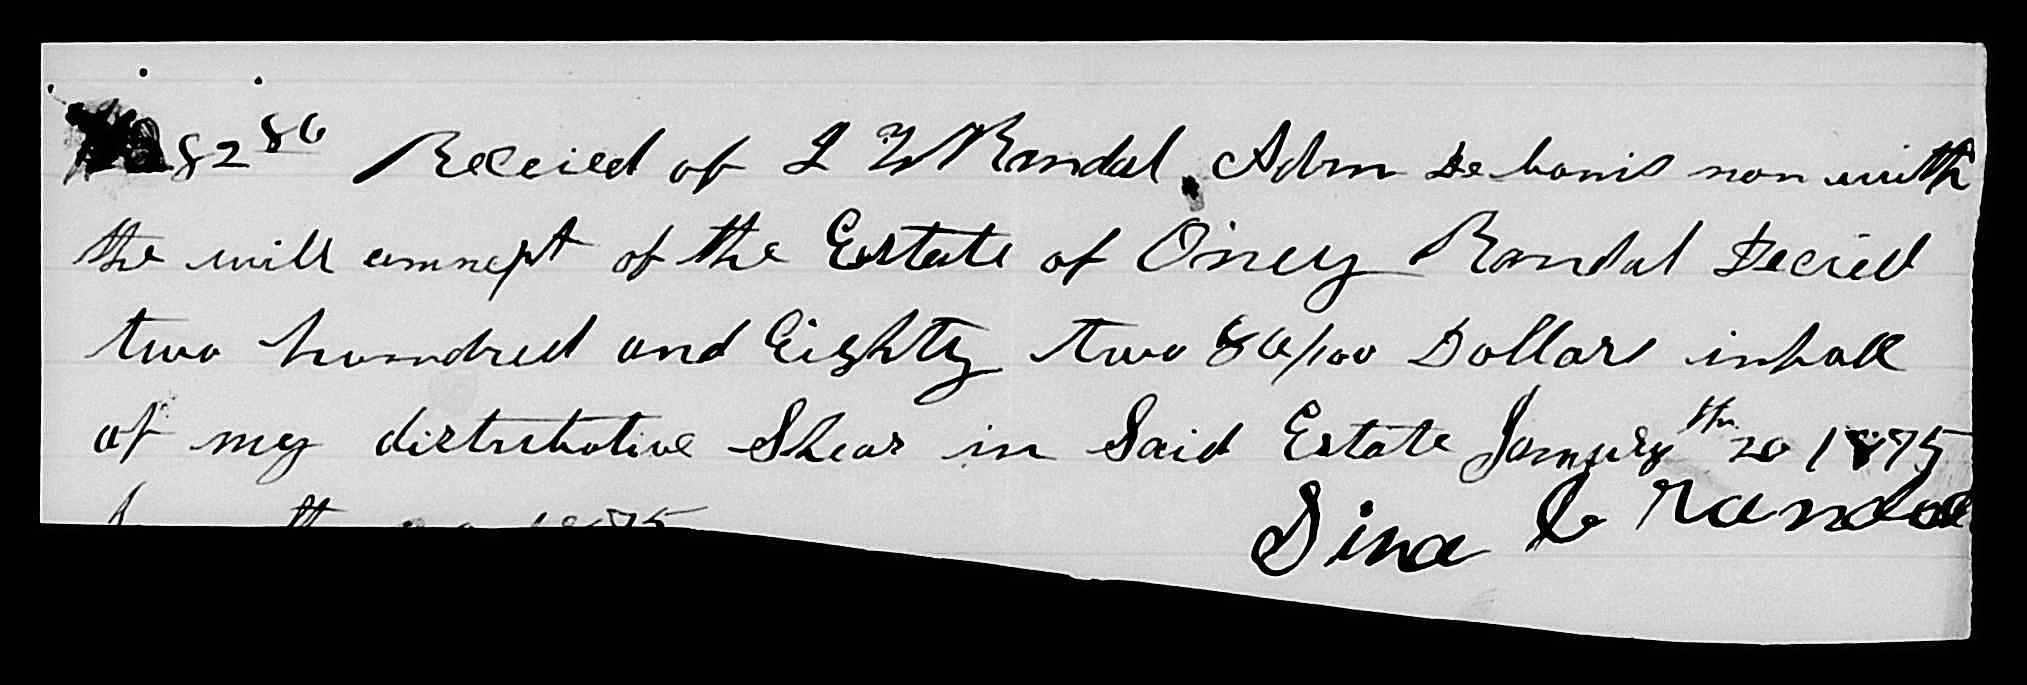 82 86 Receied of J W Randal Adm De bonis non with
the will annext of the Estate of Oiney Randal Decied
two hundred and Eighty two 86/100 Dollars in full
of my distributive Shear in Said Estate January 20th 1875
Sina C Randal